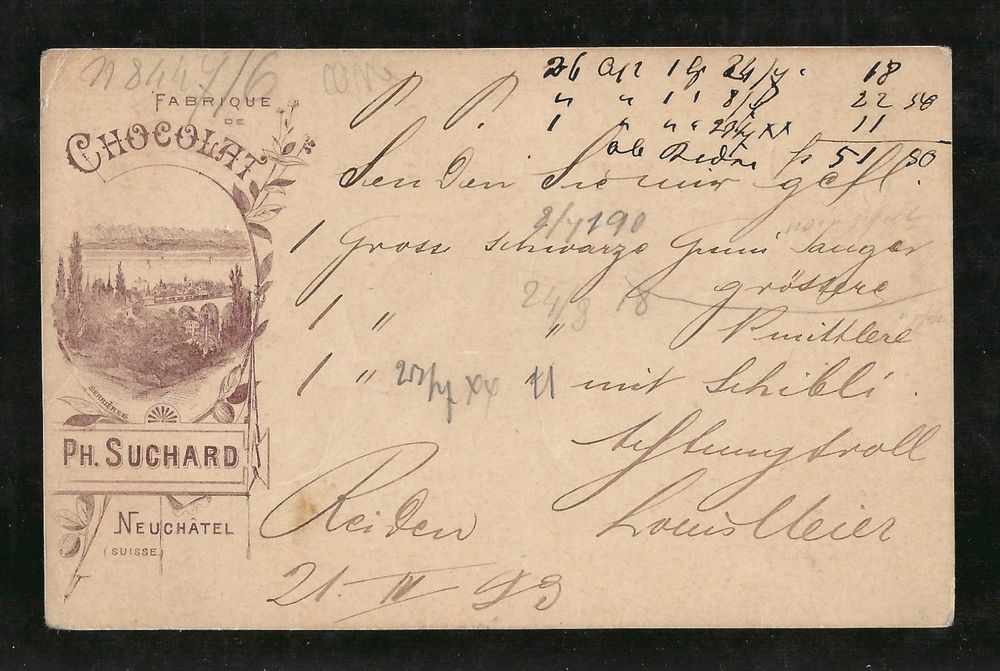 n 8447/6
FABRIQUE
DE
CHOCOLAT
SERRIÈRES
PH. SUCHARD
NEUCHÂTEL
(SUISSE)
26 Apr 1 24/4 18
" " 1 8/4 22 50
1 " " XX 11
fr 51 50
P. P.
Senden Sie mir gefl.
2/4 190
1 Gross schwarze Gumi Sauger
grössere
24/8 18
1 " " mittlere
1 " XX 11 mit Schibli.
Achtungsvoll
Reiden Louis Meier
21. IV 93